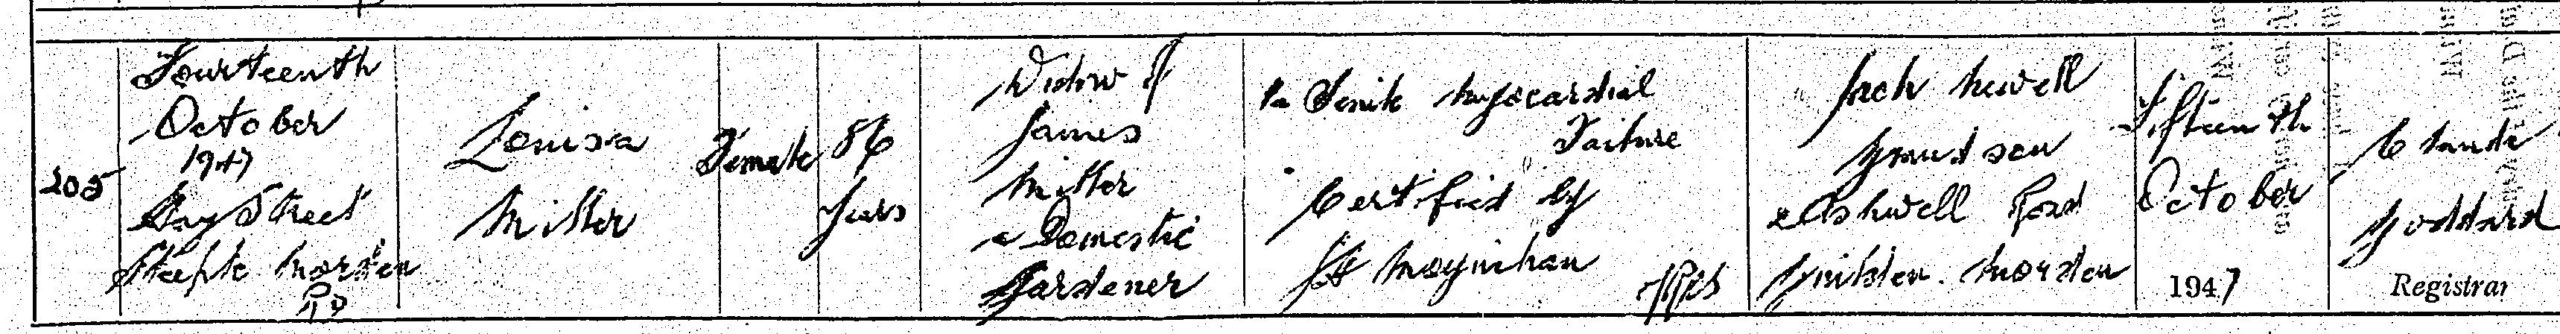 205
Fourteenth
October
1947
Hay Street
Steeple Morden
RD
Louisa
Miller
Female
86
years
Widow of
James
Miller
a Domestic
Gardener
1a Senile Myocardial
Failure
Certified by
Moynihan
MRCS
Jack Newell
Grandson
2 Ashwell Road
Guilden Morden
Fifteenth
October
1947
Claude
Goddard
Registrar